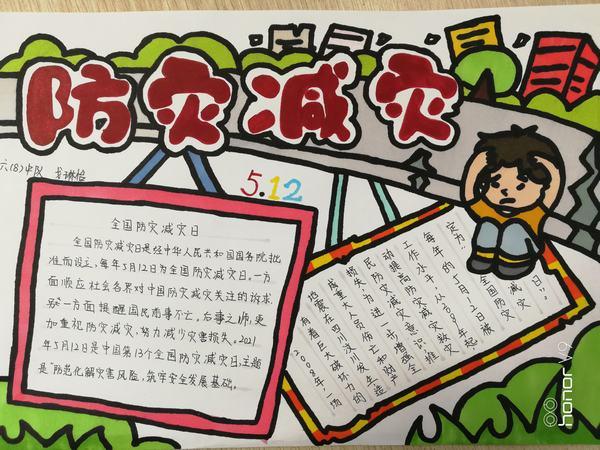 防灾减灾
六(8)中队
5.12
全国防灾减灾日
全国防灾减灾日是经中华人民共和国国务院批
准而设立,每年5月12日为全国防灾减灾日。一方
面顺应社会各界对中国防灾减灾关注的诉求,
另一方面提醒国民前事不忘,后事之师,更
加重视防灾减灾,努力减少灾害损失。2021
年5月12日是中国第13个全国防灾减灾日,主题
是"防范化解灾害风险,筑牢安全发展基础。
2008年,一场
有着巨大破坏力的
地震在四川汶川发生,造
成重大人员伤亡和财产
损失。为进一步增强全
民防灾减灾意识,推
动提高防灾减灾救灾
工作水平,从2009年起,
每年的5月12日被
定为"全国防灾减灾日"。
honor V9